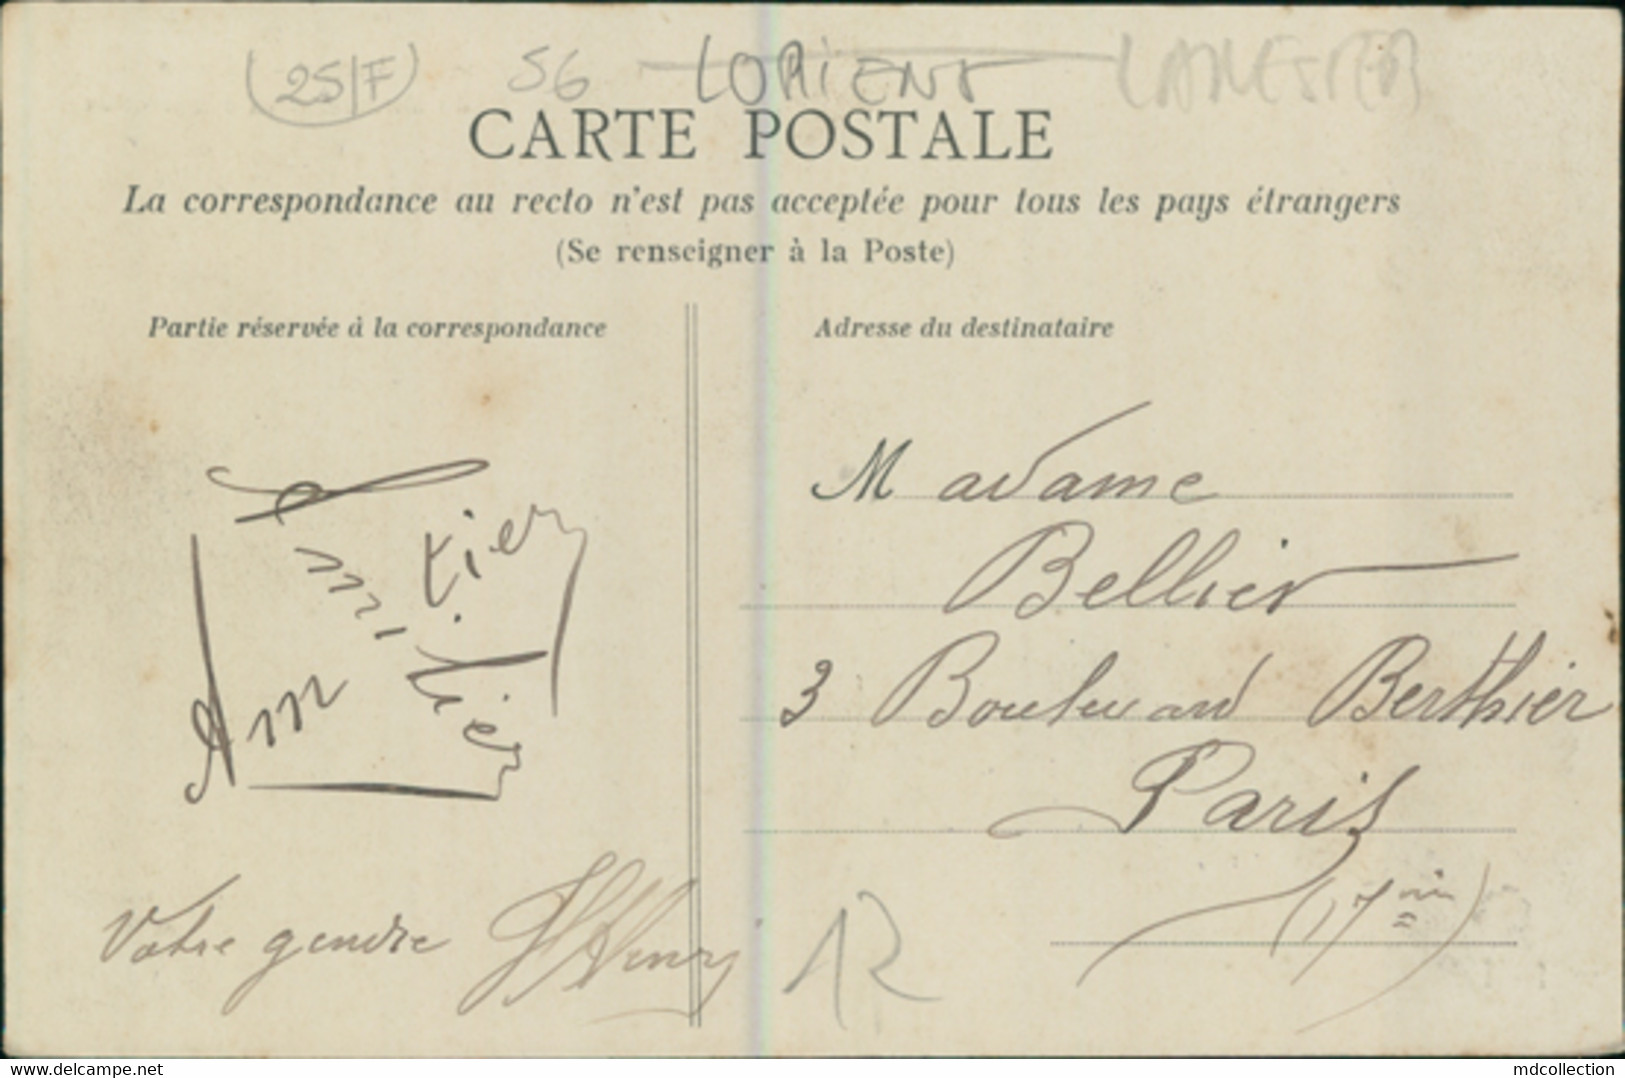 (25/F) 56 LORIENT LANESTER
CARTE POSTALE
La correspondance au recto n'est pas acceptée pour tous les pays étrangers
(Se renseigner à la Poste)
Partie réservée à la correspondance
Adresse du destinataire
Madame
Bellier
3 Boulevard Berthier
Paris
(17
Votre gendre
Henry
12
www.delcampe.net
mdcollection